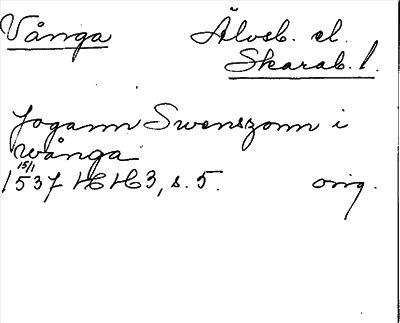 Vånga Älvsb. el.
Skarab. l.
Jogann Swenszonn i
wånga
15/1
1537 HH3, s. 5. orig.